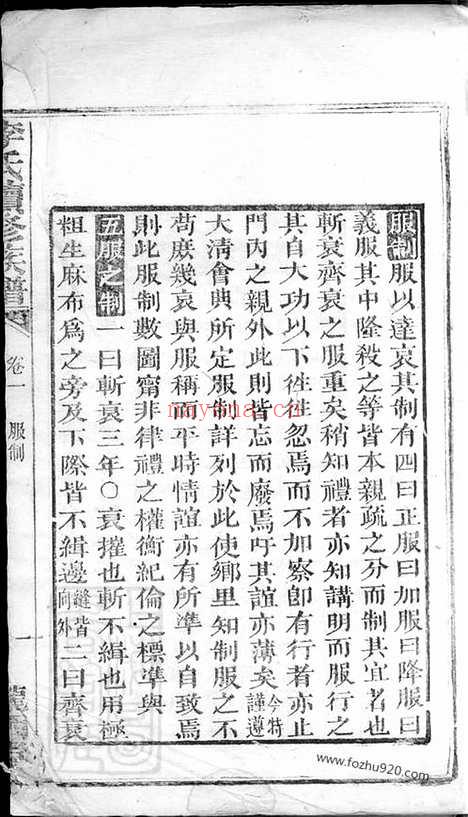 服制服以達哀其制有四曰正服曰加服曰降服曰
義服其中隆殺之等皆本親疏之分而制其宜者也
斬衰齊衰之服重矣稍知禮者亦知講明而服行之
其自大功以下徃徃忽焉而不加察卽有行者亦止
門內之親外此則皆忘而廢焉吁其誼亦薄矣今特謹遵
大清會典所定服制詳列於此使鄉里知制服之不
苟庶幾哀與服稱而平時情誼亦有所準以自致焉
則此服制數圖甯非律禮之權衡紀倫之標準與
五服之制一曰斬衰三年○衰摧也斬不緝也用極
粗生麻布為之旁及下際皆不緝邊縫皆向外二曰齊衰
李氏續修族譜
卷一
服制
一
mayona.cn
www.fozhu920.com